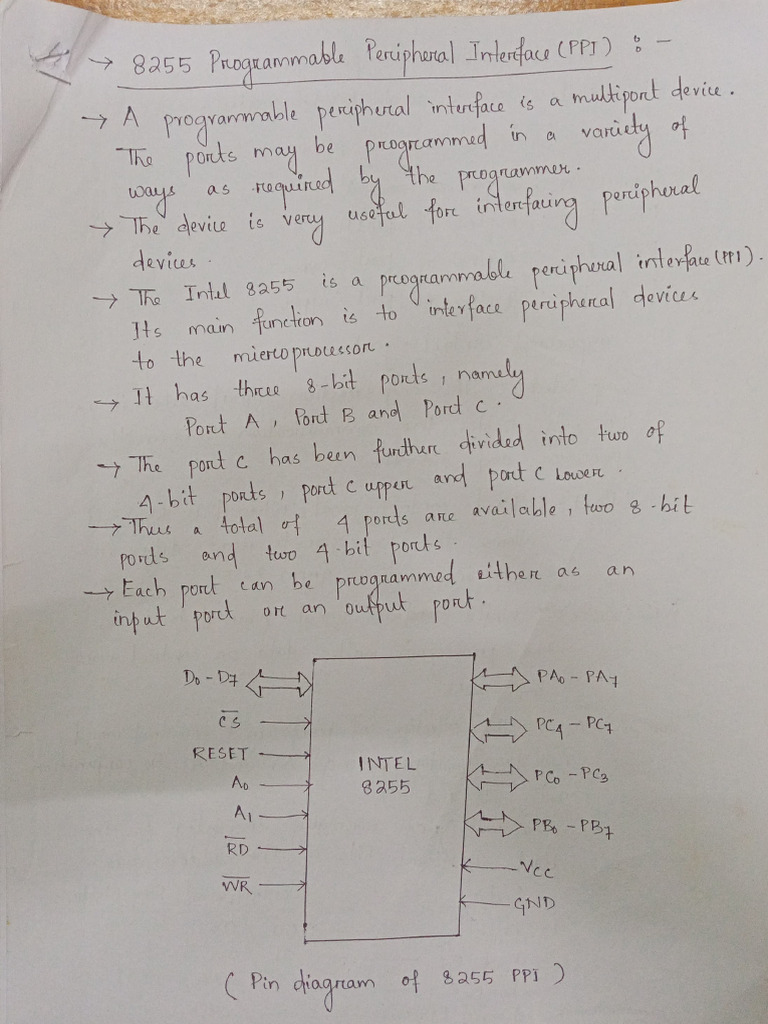 → 8255 Programmable Peripheral Interface (PPI) : -
→ A programmable peripheral interface is a multiport device.
The ports may be programmed in a variety of
ways as required by the programmer.
→ The device is very useful for interfacing peripheral
devices.
→ The Intel 8255 is a programmable peripheral interface (PPI).
Its main function is to interface peripheral devices
to the microprocessor.
→ It has three 8-bit ports, namely
Port A, Port B and Port C.
→ The port C has been further divided into two of
4-bit ports, port C upper and port C Lower.
→ Thus a total of 4 ports are available, two 8-bit
ports and two 4-bit ports.
→ Each port can be programmed either as an
input port or an output port.
D₀ - D₇
C̅S̅
RESET
A₀
A₁
R̅D̅
W̅R̅
INTEL
8255
PA₀ - PA₇
PC₄ - PC₇
PC₀ - PC₃
PB₀ - PB₇
Vcc
GND
( Pin diagram of 8255 PPI )